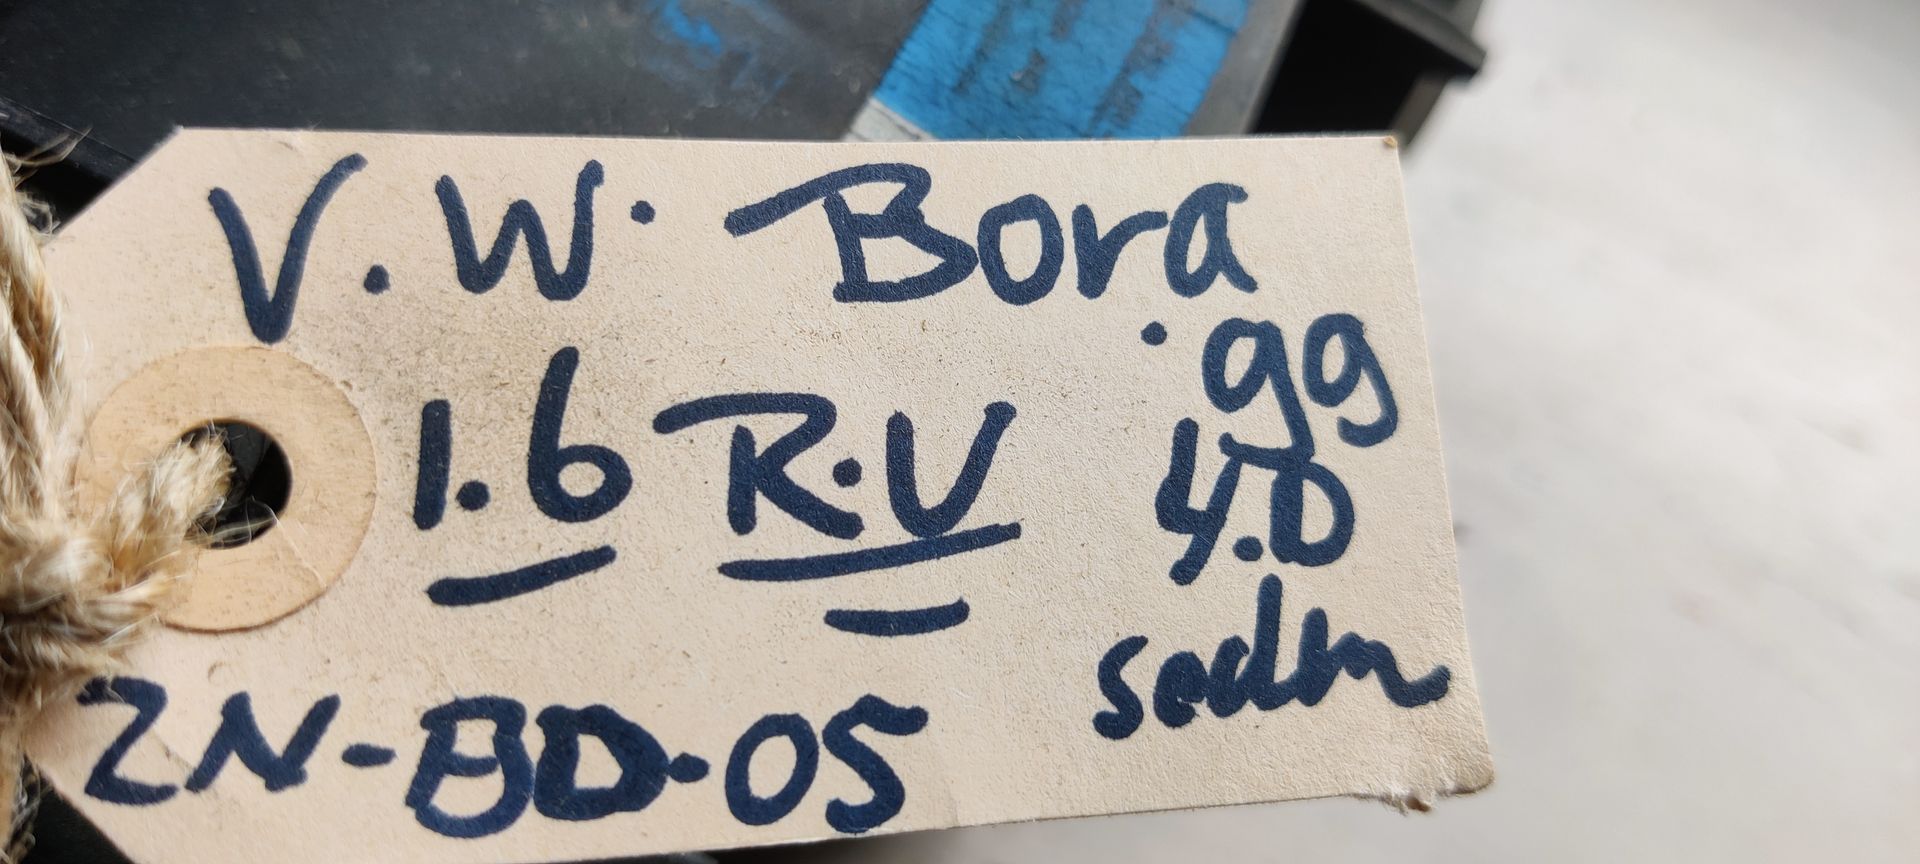 V.W. Bora
.99
1.6 R.V
4.D
sedan
ZN-BD-05